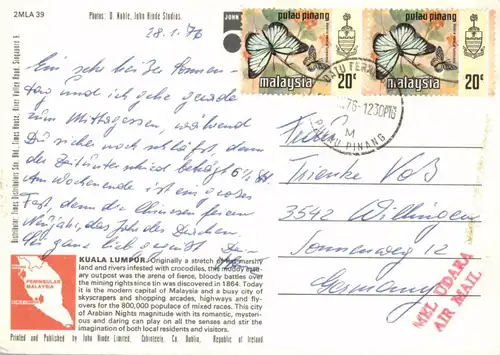 2MLA 39
Photos: D. Noble, John Hinde Studios.
JOHN
28.1.76
Ein sehr heißer Sonnen-
tag und ich gehe gerade
zum Mittagessen, während
Du sicher noch schläfst, denn
der Zeitunterschied beträgt 6½
Am Wochenende ist ein großes
Fest, denn die Chinesen feiern
Neujahr, das Jahr des Drachen.
Sei ganz lieb gegrüßt
pulau pinang
malaysia
20c
pulau pinang
malaysia
20c
76-1230PM
M
PULAU PINANG
Trienke Voß
3542 Willingen
Sonnenweg 12
Germany
MEL UDARA
AIR MAIL
PENINSULAR
MALAYSIA
KUALA LUMPUR. Originally a stretch of marshy
land and rivers infested with crocodiles, this muddy
ary outpost was the arena of fierce, bloody battles over
the mining rights since tin was discovered in 1864. Today
it is the modern capital of Malaysia and a busy city of
skyscrapers and shopping arcades, highways and fly-
overs for the 800,000 populace of mixed races. This city
of Arabian Nights magnificence with its romantic, mysteri-
ous and daring can play on all the senses and stir the
imagination of both local residents and visitors.
Printed and Published by John Hinde Limited, Cabinteely, Co. Dublin, Republic of Ireland
Distributor: Times Distributors Sdn. Bhd., Times House, River Valley Road, Singapore 9.